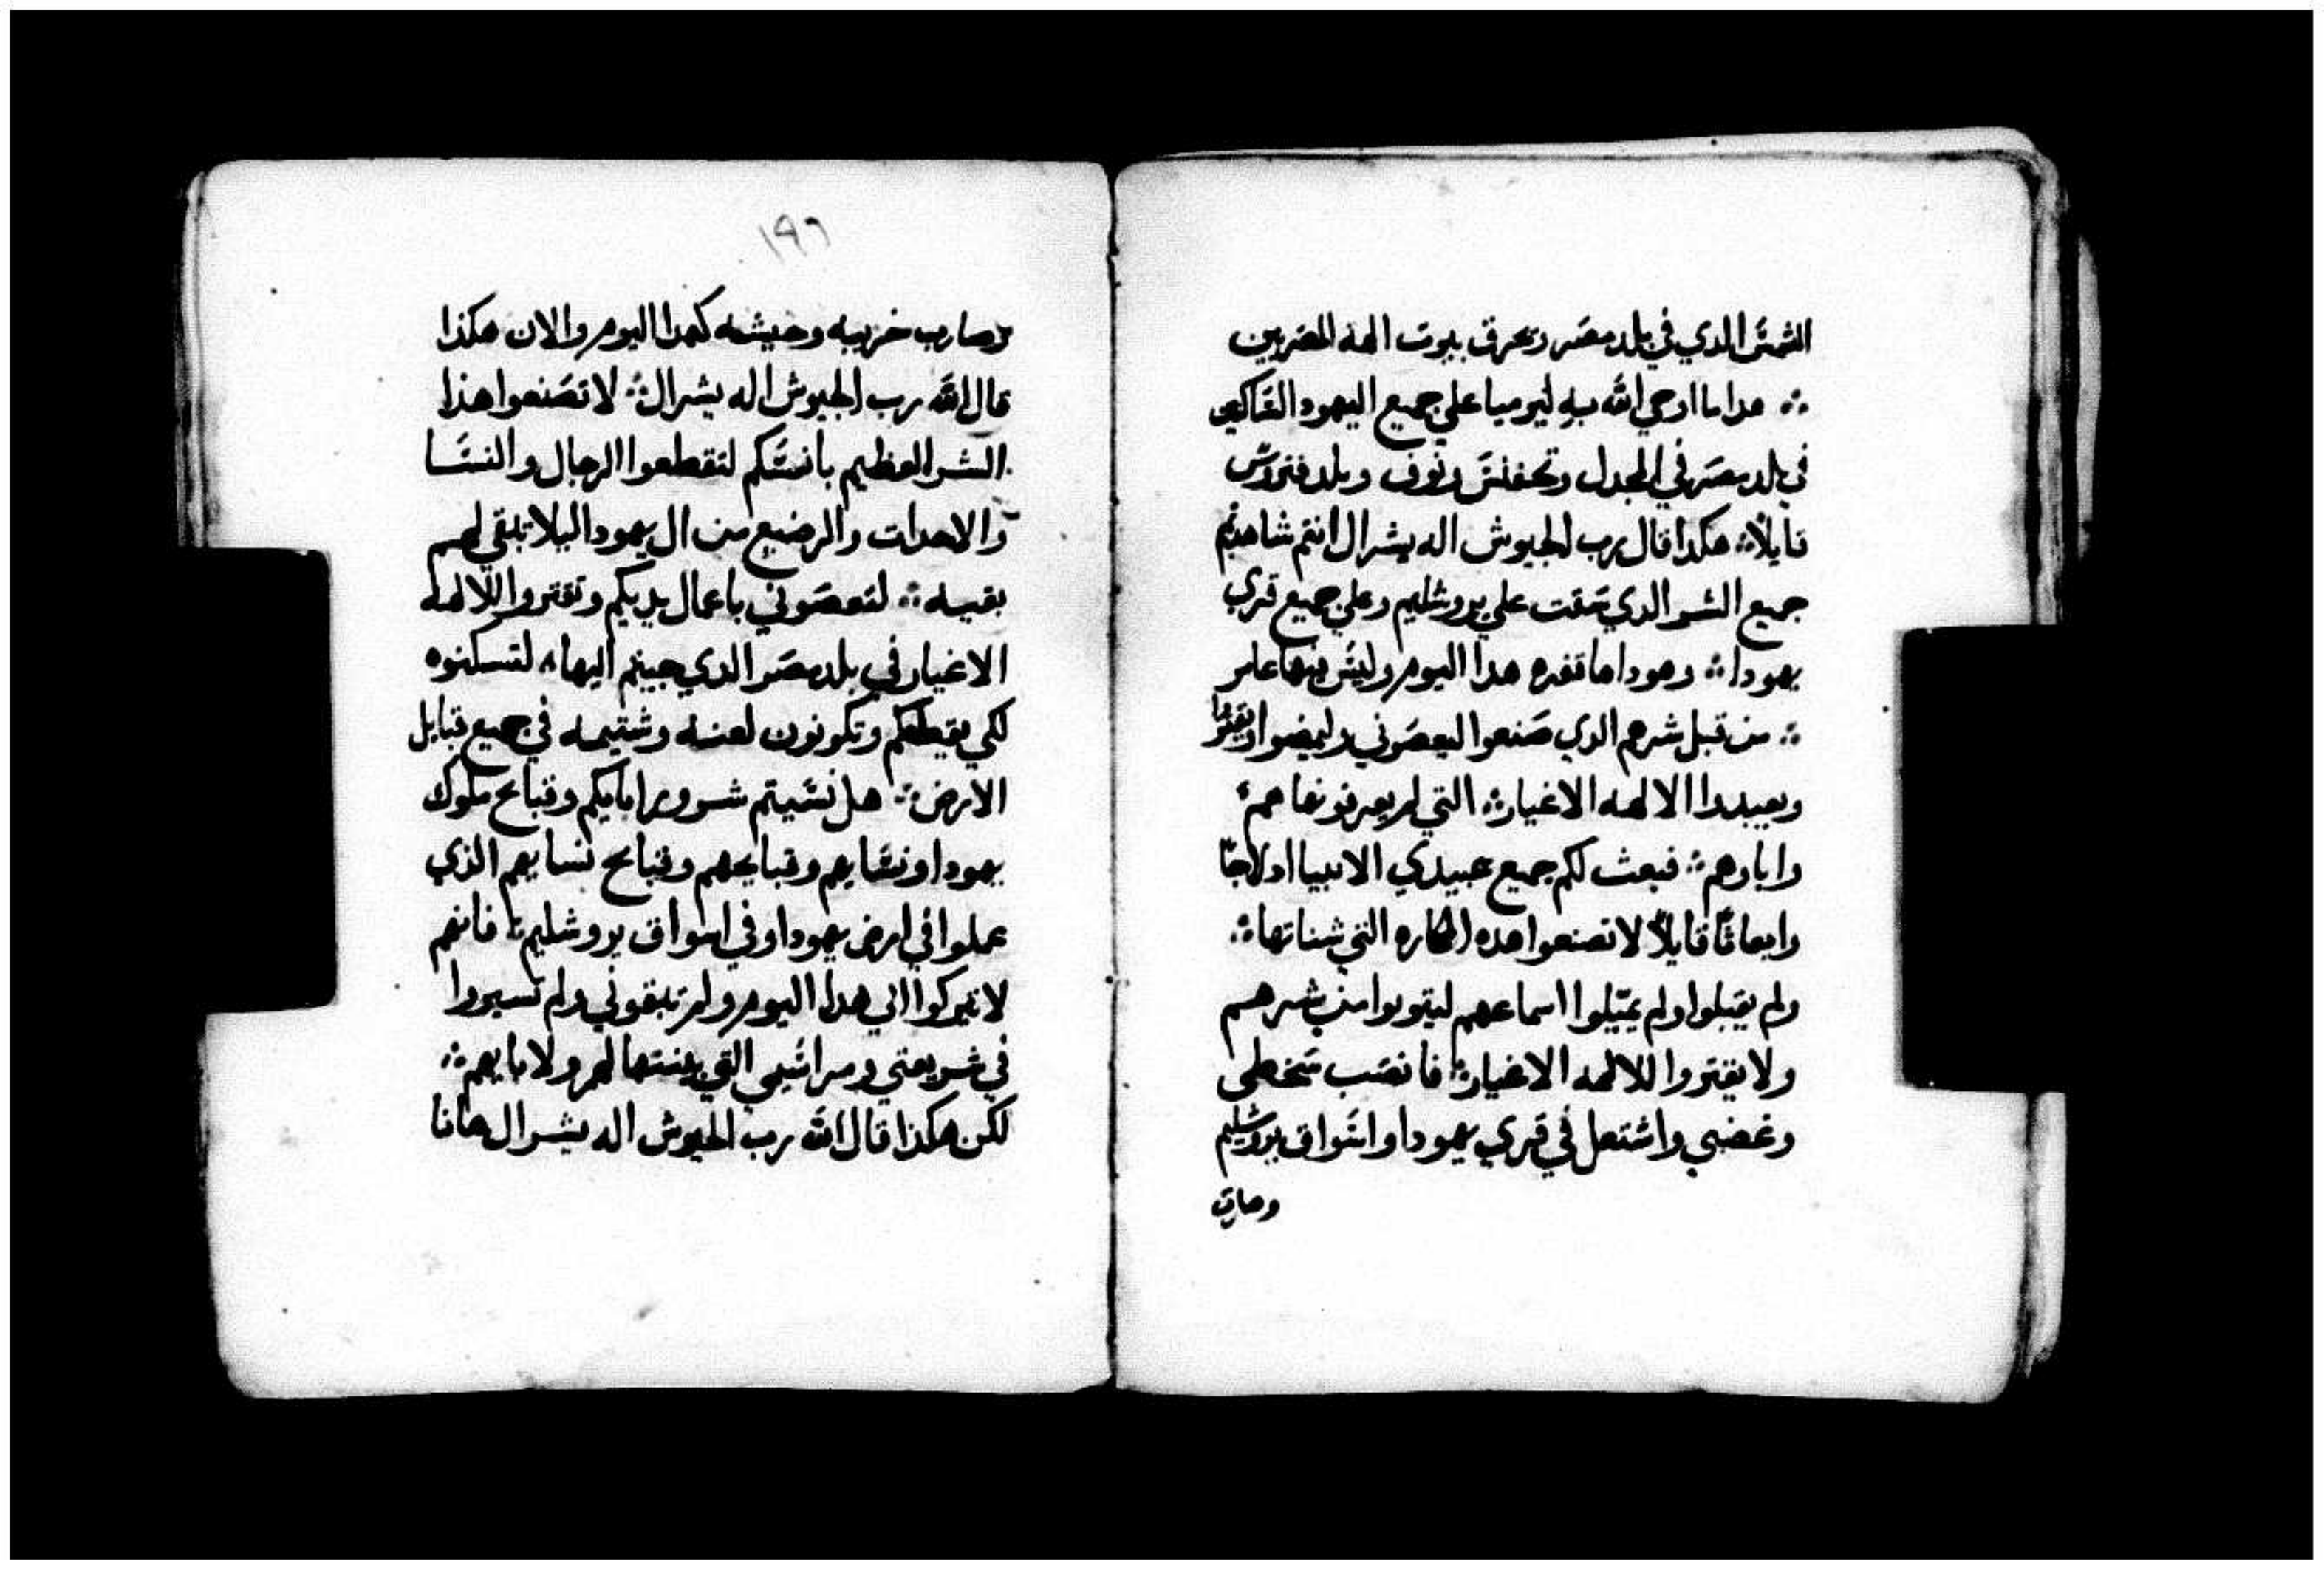 الشمس الدي في بلد مصر وتحرق بيوت الهة المصريين
∴ هدا ما اوحي الله به ليرميا علي جميع اليهود الساكنين
في بلد مصر في المجدل وتحفنس ونوف وبلد فتروس
قايلاً ∴ هكدا قال رب الجيوش اله يشرال انتم شاهدتم
جميع الشر الدي سقت علي يروشليم وعلي جميع قري
يهودا ∴ وهودا ها قفره هدا اليوم وليس فيها عامر
∴ من قبل شرهم الدي صنعوا ليعصوني وليمضوا ويقتروا
ويعبدوا الالهه الاغيار ∴ التي لم يعرفونها هم
واباوهم ∴ فبعث لكم جميع عبيدي الانبيا ادلاجًا
وابعاثًا قايلاً لا تصنعوا هده المكاره التي شناتها ∴
ولم يقبلوا ولم يميّلوا اسماعهم ليتوبوا من شرهم
ولا يقتروا للالهه الاغيار ∴ فانصب سخطي
وغضبي واشتعل في قري يهودا واسواق يروشليم
وصارت
١٩٦
وصارت خربه وحيشه كهدا اليوم والان هكذا
قال الله رب الجيوش اله يشرال ∴ لا تصنعوا هذا
الشر العظيم بانفسكم لتقطعوا الرجال والنسا
والاحداث والرضيع من ال يهودا ليلا تبقي لهم
بقيه ∴ لتعصوني باعمال يديكم وتقتروا للالهه
الاغيار في بلد مصر الدي جيتم اليها لتسكنوه
لكي يقطعكم وتكونون لعنه وشتيمه في جميع قبايل
الارض ∴ هل نسيتم شرور ابايكم وقبايح ملوك
يهودا ونسايهم وقبايحهم وقبايح نسايهم الذي
عملوا في ارض يهودا وفي اسواق يروشليم ∴ فانهم
لا تبركوا الي هدا اليوم ولم تبقوني ولم تسيروا
في شريعتي ومراسمي التي بينتها لهم ولابايهم ∴
لكن هكذا قال الله رب الجيوش اله يشرال هانا